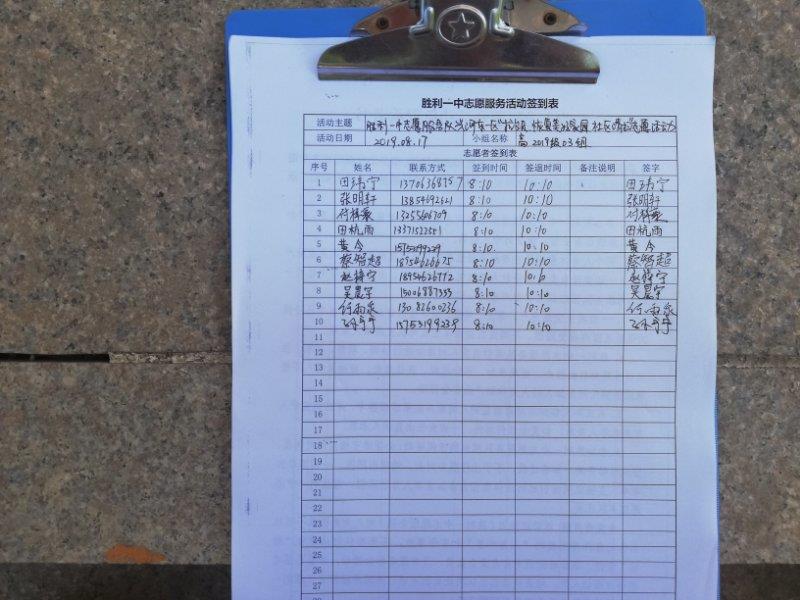 胜利一中志愿服务活动签到表
活动主题 胜利一中志愿服务队 河东一区 恢复美 家园 社区 志愿活动
活动日期 2019.08.17 小组名称 高2019级03组
志愿者签到表
序号 姓名 联系方式 签到时间 签退时间 备注说明 签字
1 田玮宁 13706368757 8:10 10:10 田玮宁
2 张明轩 13854692621 8:10 10:10 张明轩
3 13255606709 8:10 10:10
4 田杭雨 13371522551 8:10 10:10 田杭雨
5 黄今 15753199239 8:10 10:10 黄今
6 蔡铭超 18954626675 8:10 10:10 蔡铭超
7 赵梓宁 18954626772 8:10 10:10 赵梓宁
8 吴晨宇 15006887353 8:10 10:10 吴晨宇
9 13082600236 8:10 10:10
10 15753199239 8:10 10:10
11
12
13
14
15
16
17
18
19
20
21
22
23
24
25
26
27